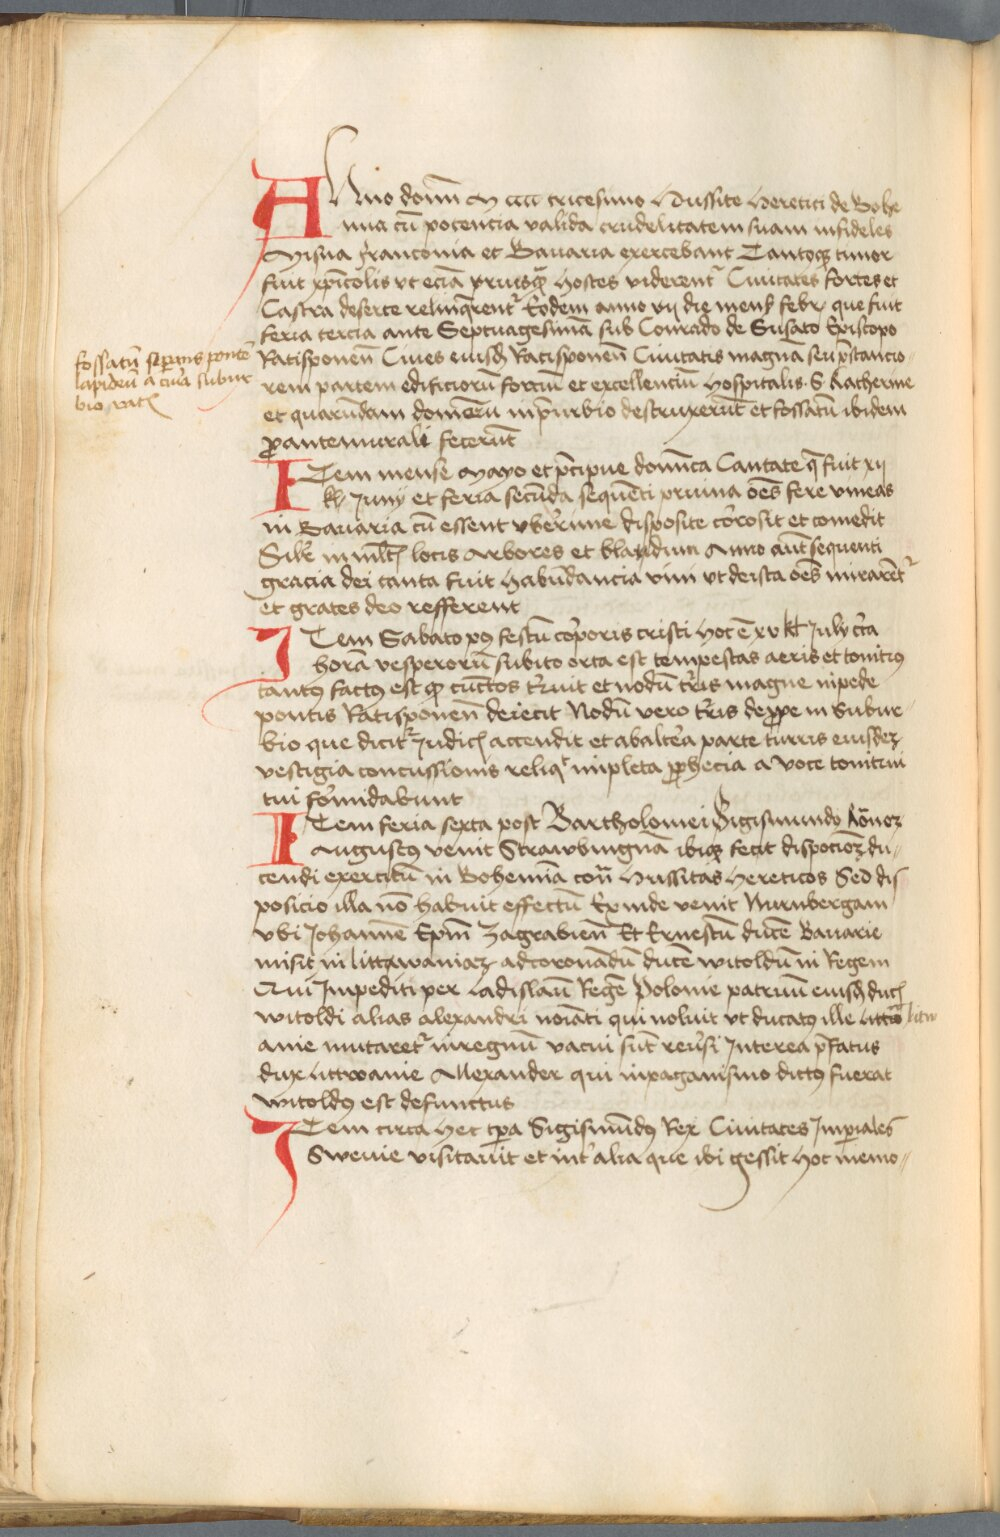 Anno domī M cccc tricesimo Hussite heretici de Bohe
mia cū potencia valida crudelitatem suam infideles
Misna Franconia et Bavaria exercebant Tantoqꝫ timor
fuit xp̄icolis vt eciā priusqꝫ hostes viderent᷑ Civitates fortes et
Castra deserte relinqrent᷑ Eodem anno vij die mens̄ febr̄ que fuit
feria tercia ante Septuagesimā sub Conrado de Susato Episcopo
Ratisponen̄ Cives eiusdꝫ Ratisponen̄ Civitatis magnā seu p̄stancio-
rem partem edificiorū forciū et excellenciū hospitalis S Katherine
et quarūdam domorū in p̄urbio destruxerūt et fossatū ibidem
ꝓ antemurali fecerūt
fossatū septēis pontē
lapideū a circa subur
bio ratꝭ
Item mense Mayo et p̄cipue domīca Cantate q̄ fuit xij
kl̄ Junij et feria secūda sequēti pruina oēs fere vineas
in Bavaria cū essent vberime disposite cōrosit et comedit
Silīr in ml̄tꝭ locis Arbores et bladum Anno aūt sequenti
gracia dei tanta fuit habūdancia vini vt de ista oēs mirarēt᷑
et grates deo refferent
Item Sabato pꝰ festū cōrporis cristi hoc ē xv kl̄ July c̄ra
horā vesperorū subito orta est tempestas aeris et tonitrꝰ
tantꝰ factꝰ est qꝫ cūctos t̄ruit et nodū t̄ris magne in pede
pontis Ratisponen̄ deiecit Nodū vero t̄ris de ꝓpe in subur-
bio que dicit᷑ Judicꝭ accendit et ab alt̄ea parte turris eiusdeꝫ
vestigia concussionis reliqᵗ impleta ꝓphecia a voce tonitrui
tui formidabunt
Item feria sexta post Bartholomei Sigismundꝰ Rōnoꝫ
Augustꝰ venit Strawbingnā ibiqꝫ fecit disposicioēꝫ du-
cendi exercitū in Bohemiā cont̄ Hussitas hereticos Sed dis
posicio illa nō habuit effectū Exinde venit Nurnbergam
vbi Johannē Ep̄m Zagrabien̄ Et Ernestū ducē Bavarie
misit in littawaniaꝫ ad coronādū ducē witoldū in Regem
Qui Impediti per Ladislaū Regē Polonie patruū eiusdꝫ ducꝭ
witoldi alias alexandri noīati qui noluit vt ducatꝰ ille litt litw
anie mutaret᷑ in regnū vacui sūt rev̄si Interea p̄fatus
dux littwanie Allexander qui in paganismo dictꝰ fuerat
witoldꝰ est defunctus
Item circa hec tp̄a Sigismūdꝰ Rex Civitates Imperiales
Swevie visitavit et int̄ alia que ibi gessit hoc memo-